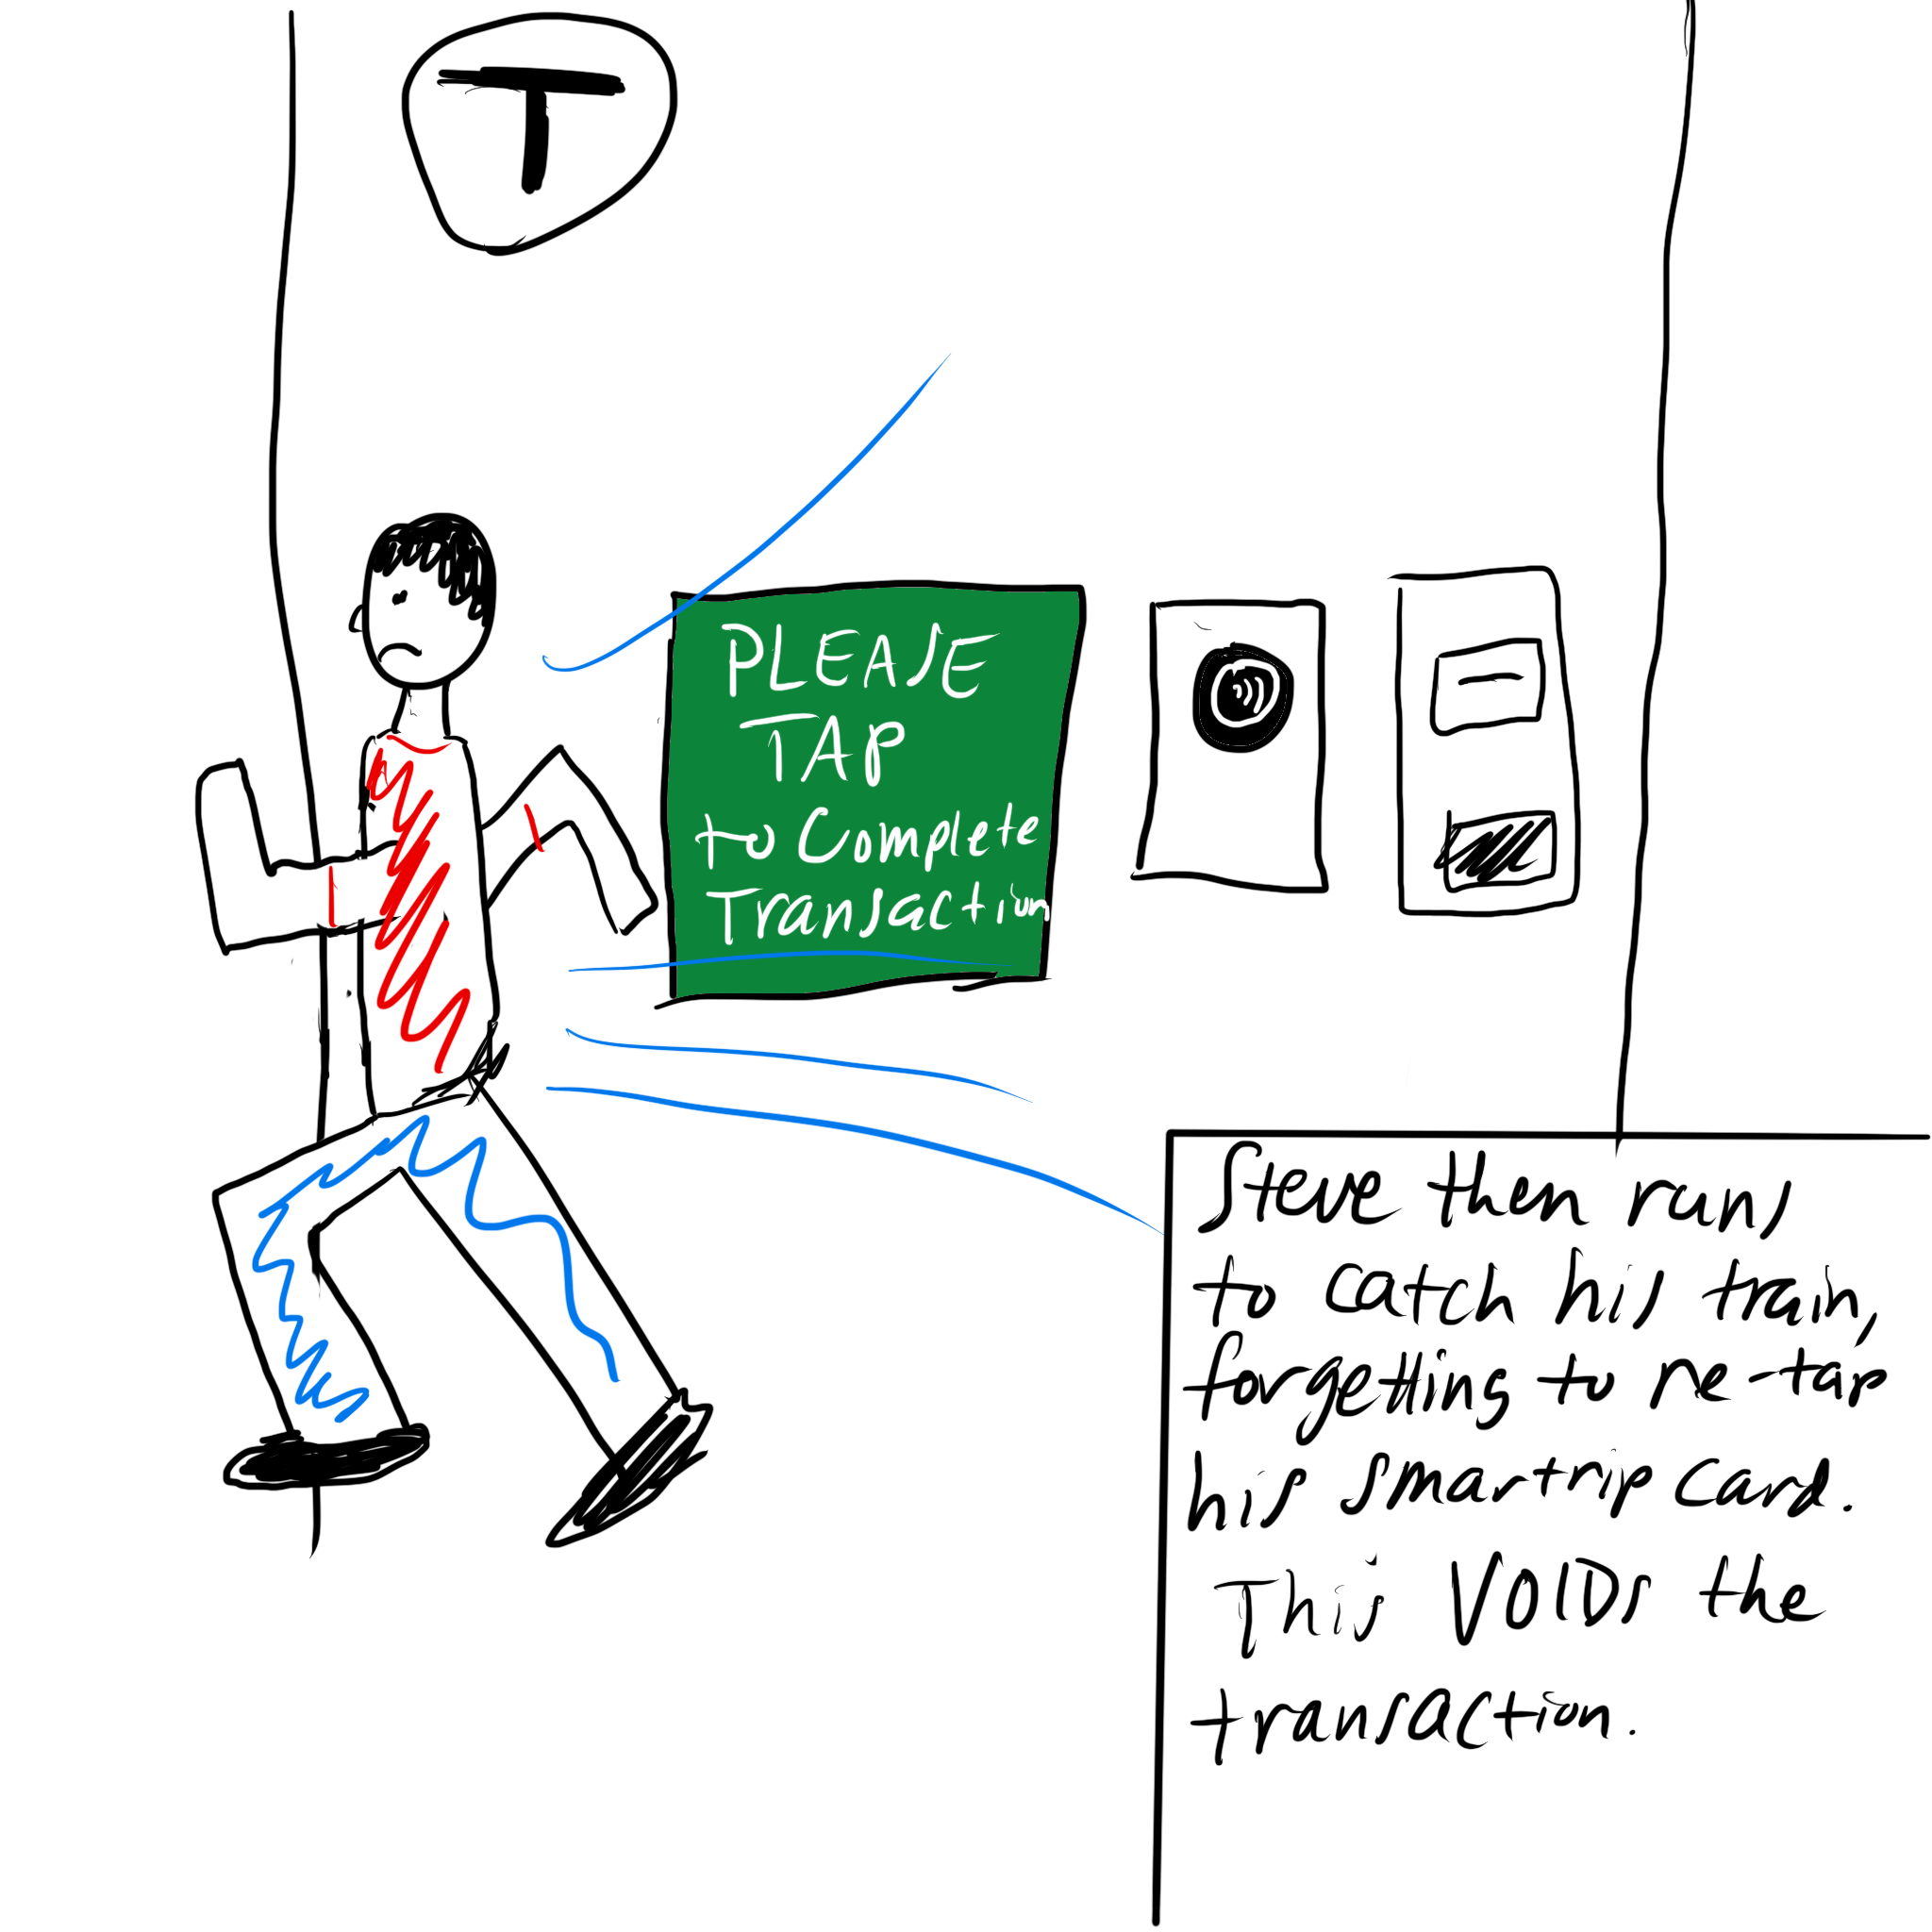 T
PLEASE
TAP
to Complete
Transaction
Steve then runs
to catch his train,
forgetting to re-tap
his smartrip card.
This VOIDs the
transaction.